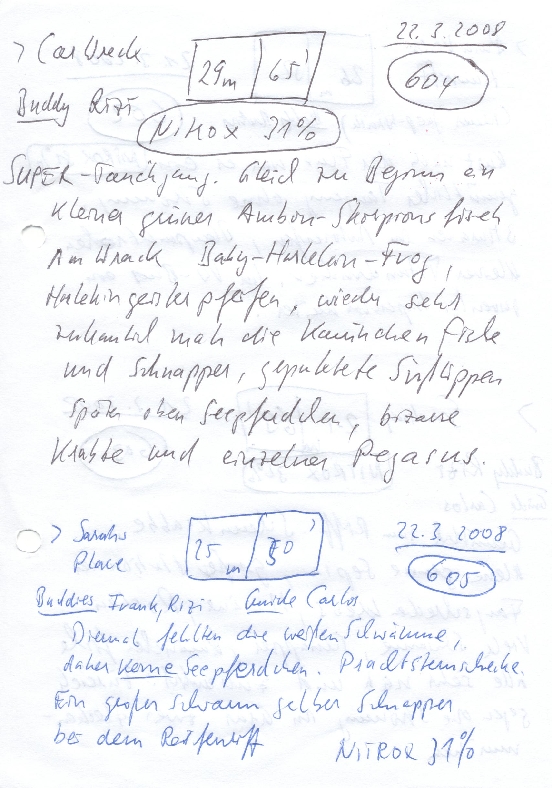 > Car Wreck
29m 65'
22.3.2008
604
Buddy Rizi
NITROX 31%
SUPER-Tauchgang. Gleich zu Beginn ein
kleiner grüner Ambon-Skorpionsfisch
Am Wrack Baby-Harlekin-Frog,
Harlekingeisterpfeifen, wieder sehr
zutraulich nah die Kaninchenfische
und Schnapper, gepunktete Süßlippen
Später oben Seepferdchen, bizarre
Krabbe und einzelner Pegasus.
> Sarahs
Place
25m 50'
22.3.2008
605
Buddies Frank, Rizi Guide Carlos
Diesmal fehlten die weißen Schwämme,
daher keine Seepferdchen. Prachtsternschnecke.
Ein großer Schwarm gelber Schnapper
bei dem Reifenriff
NITROX 31%